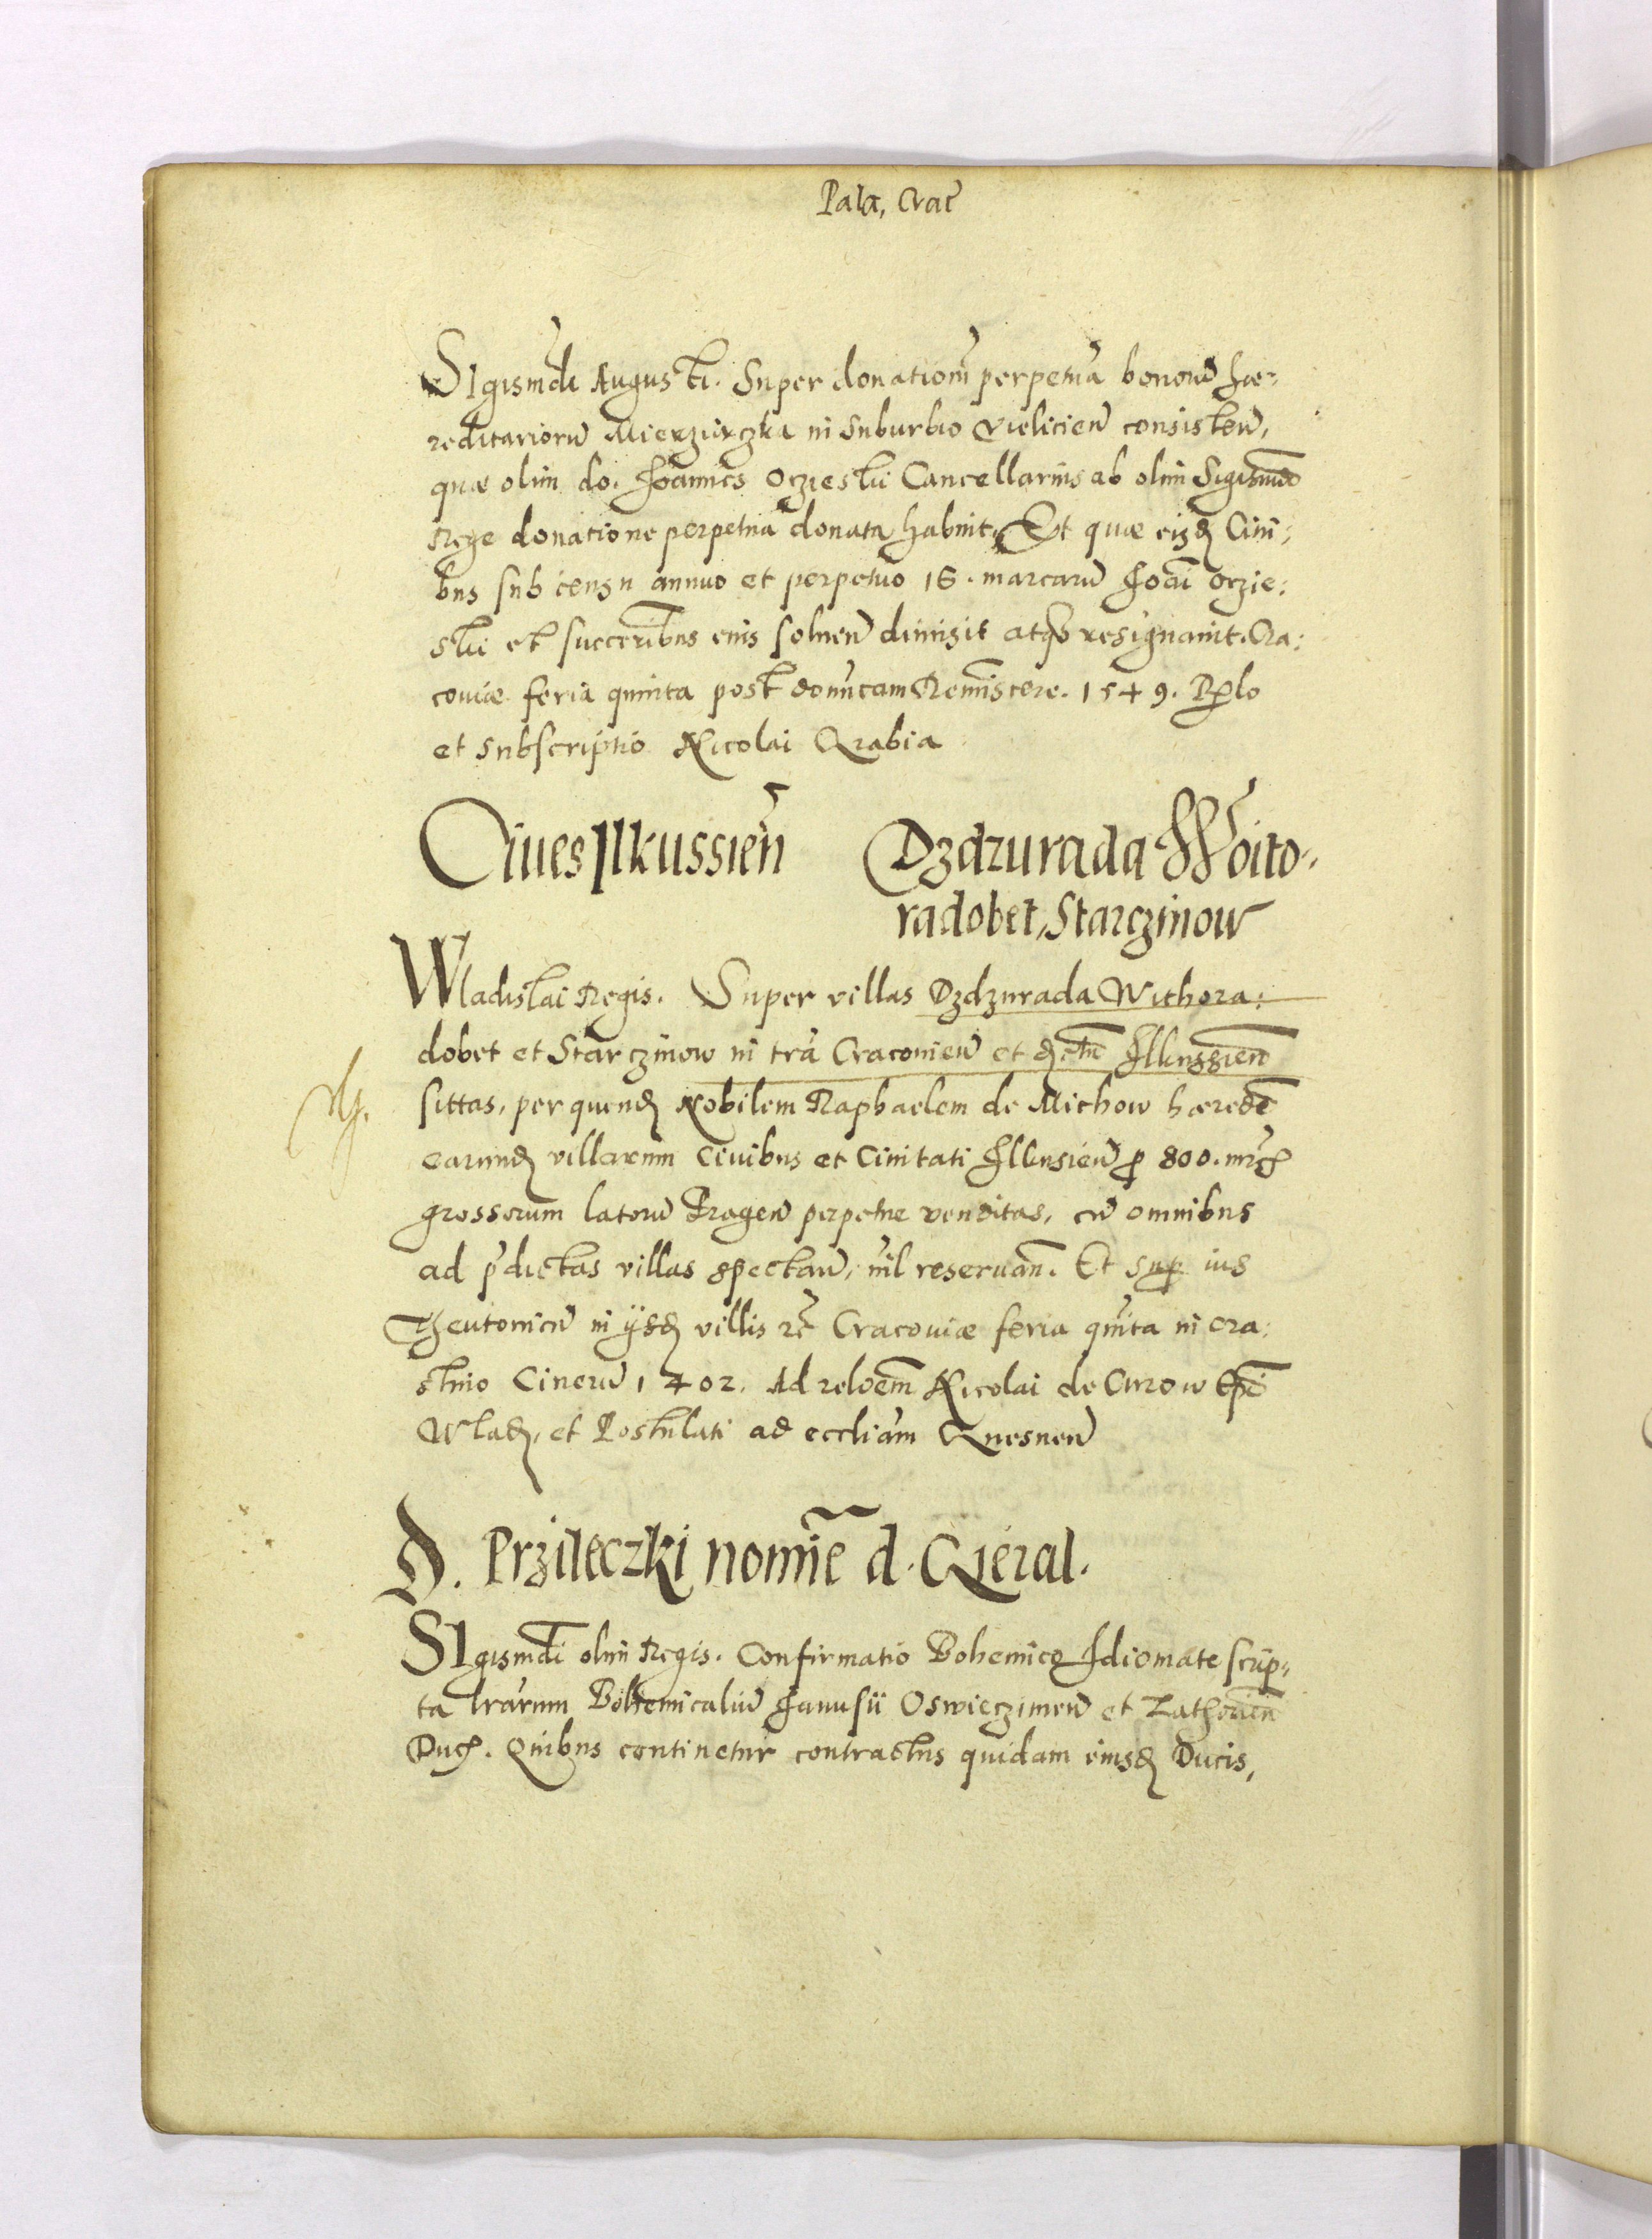 Pala, Crac̄
Sigism̄di Augusti. Super donationē perpetuā bonorū hæ-
reditariorū Mierziączka in suburbio Vielicień consisteń,
quæ olim do. Joannes Ocziesky Cancellarius ab olim Sigismūdo
Rege donatione perpetua donata habuit. Et quæ eisd. Ciui-
bus sub censu annuo et perpetuo 16. marcarū Joāi Oczie-
ski et succeribus eius soluen̄ dimisit atq3 resignauit. Cra-
couiæ feria quinta post domīcam Reminīscere. 1549. Sp̄lo
et subscriptio Nicolai Grabia
Ciues Ilkussień Dzdzurada Woito-
radobet, Starczinow
Wladislai Regis. Super villas Dzdzurada Withora-
dobet et Starczinow in trā Cracouień et Ilkussień
sittas, per quend. Nobilem Raphaelem de Michow hæredē
earund. villarum Ciuibus et Ciuitati Ilkusień p̄ 800. mrc̄
grossorum latorū Pragen̄ perpetue venditas, cū omnibus
ad p̄dictas villas spectan̄, nīl reseruan̄. Et sup̄ ius
Theutonicū in ijsd. villis r̄c Cracouiæ feria quīta in cra-
stino Cinerū 1402. Ad reloēm Nicolai de Curow Ep̄i
Wlad. et Postulati ad eccliām Gnesnen̄
D. Przileczki nomīe d. Gieral.
Sigism̄di olim Regis. Confirmatio Bohemico Idiomate scrip-
ta lr̄arum Bohemicaliū Janusii Oswieczimen̄ et Zathorień
Duc̄. Quibus continetur contractus quidam eiusd. Ducis,